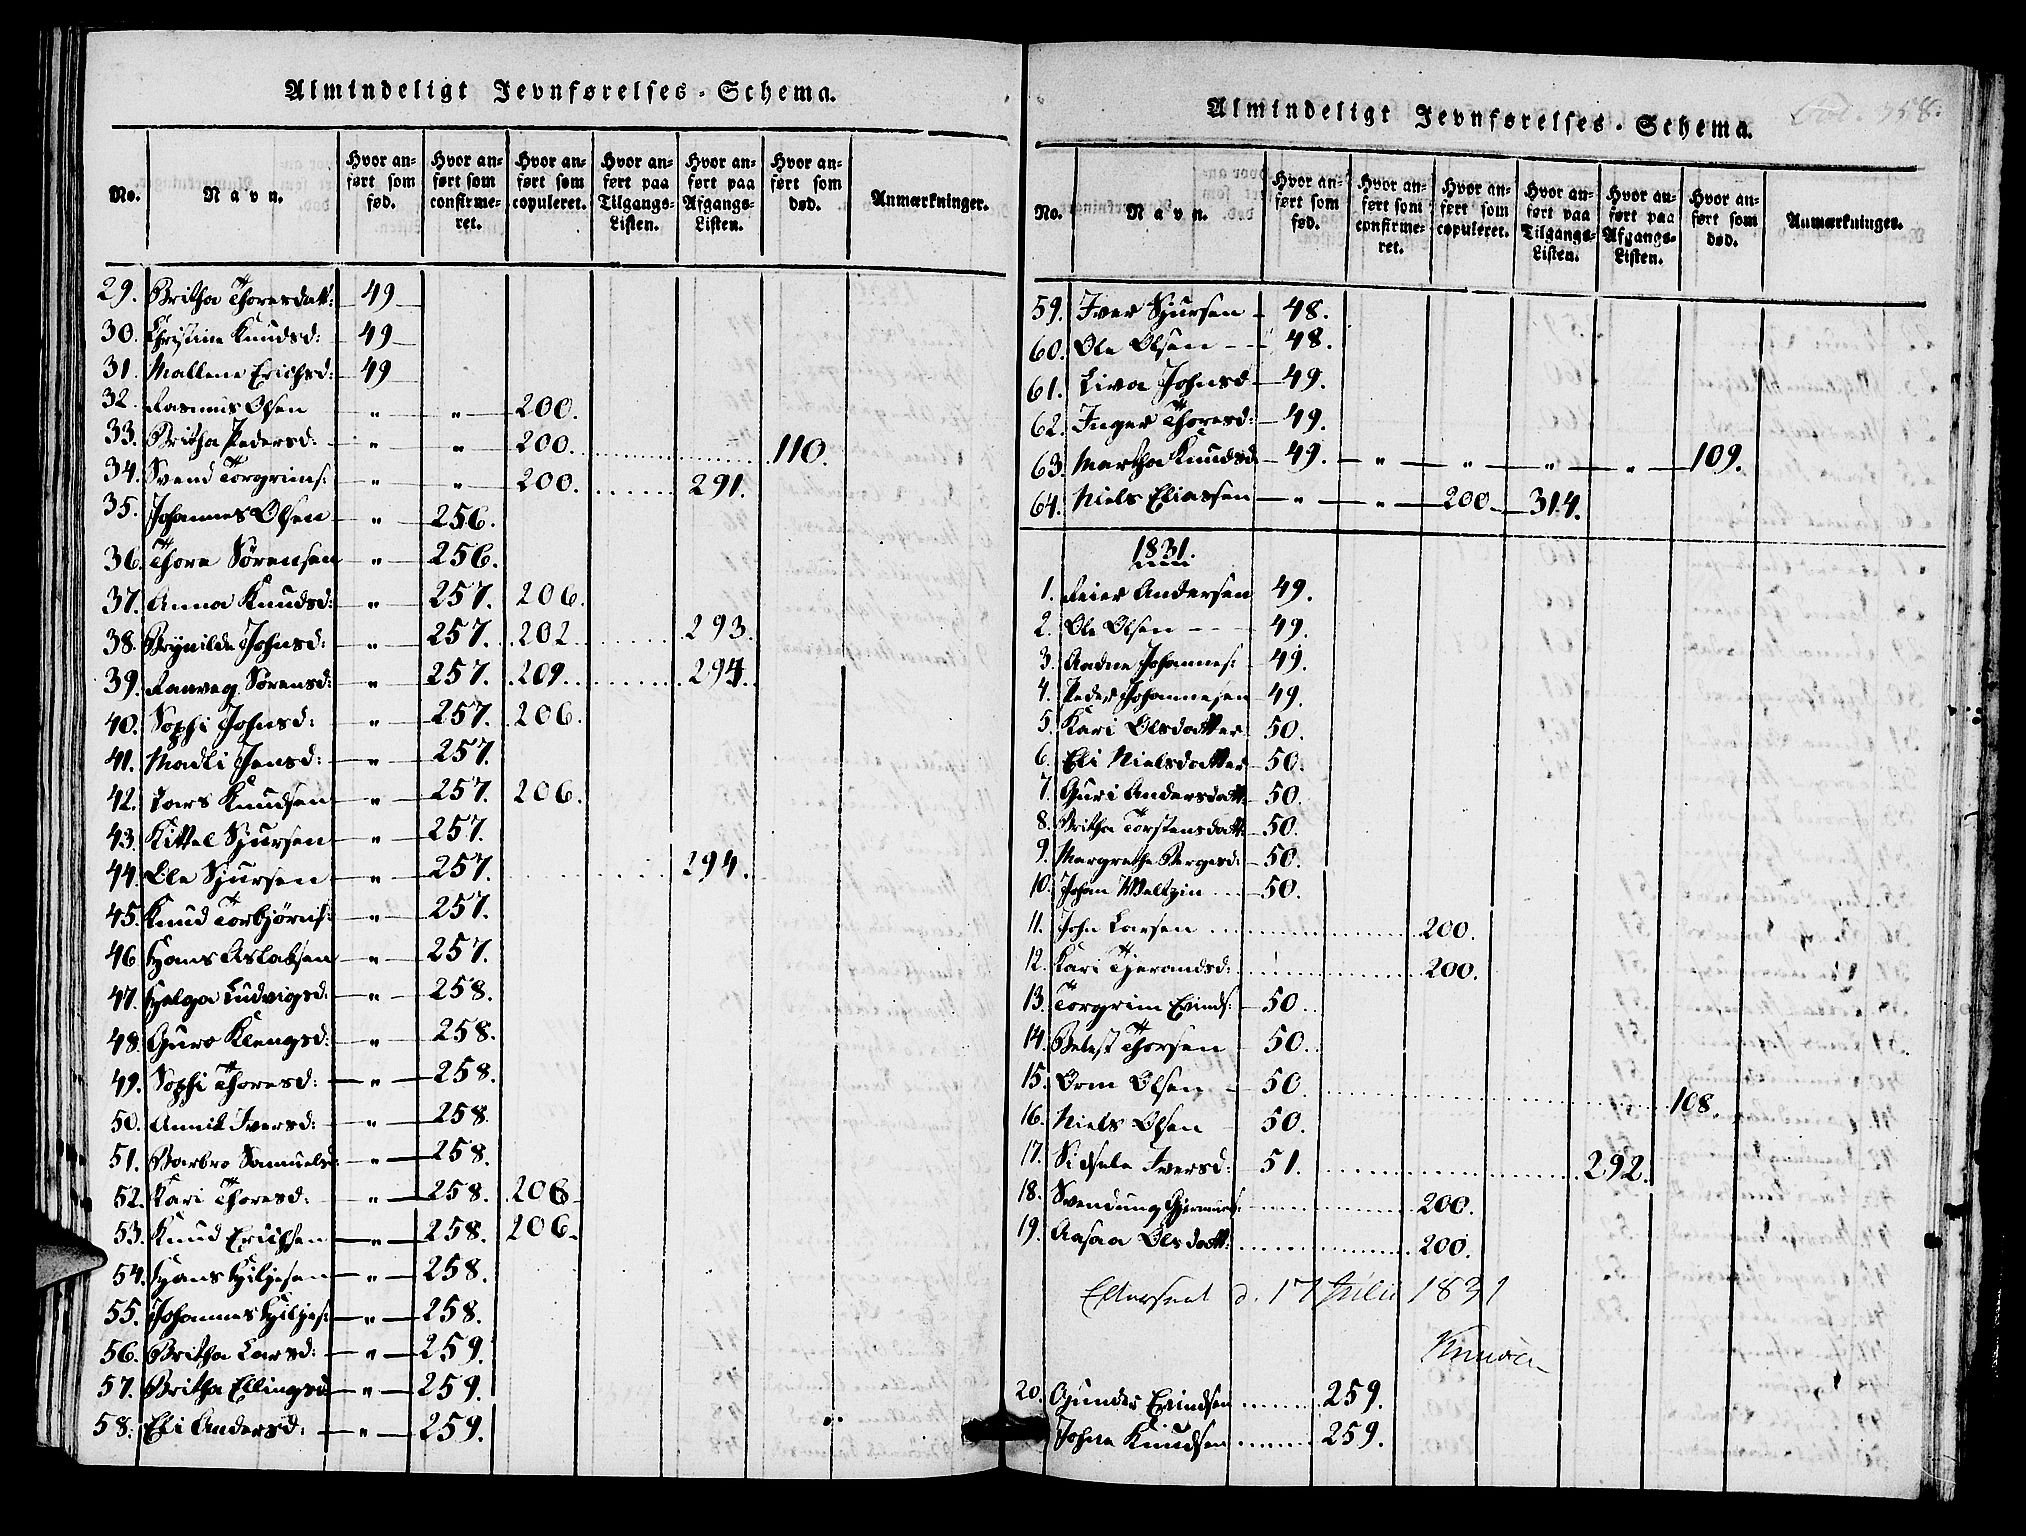 Almindeligt Jevnførelses-Schema.
No. Navn. Hvor anført som fød. Hvor anført som confirmeret. Hvor anført som copuleret. Hvor anført paa Tilgangs-Listen. Hvor anført paa Afgangs-Listen. Hvor anført som død. Anmærkninger.
29. Britha Thoresdatt: 49
30. Christine Knudsd: 49
31. Mallene Erichsd: 49
32. Rasmus Olsen " " 200.
33. Britha Pedersd: " " 200. 110.
34. Svend Torgrims: " " 200. 291.
35. Johannes Olsen " 256.
36. Thore Sørensen " 256.
37. Anna Knudsd: " 257. 206.
38. Brynilde Johnsd: " 257. 202. 293.
39. Ranveg Sørensd: " 257. 209. 294.
40. Sophi Johnsd: " 257. 206.
41. Madli Jensd: " 257.
42. Lars Knudsen " 257. 206.
43. Kittel Sjursen " 257.
44. Ole Sjursen " 257. 294.
45. Knud Torbjørns: " 257.
46. Hans Aslaksen " 257.
47. Helga Ludvigsd: " 258.
48. Guro Klengsd: " 258.
49. Sophi Thoresd: " 258.
50. Annik Iversd: " 258.
51. Barbro Samuelsd " 258.
52. Kari Thoresd: " 258. 206
53. Knud Erichsen " 258. 206
54. Hans Hiljesen " 258.
55. Johannes Hiljes: " 258.
56. Britha Larsd: " 259.
57. Britha Ellingsd " 259.
58. Eli Andersd: " 259.
Almindeligt Jevnførelses-Schema.
358.
No. Navn. Hvor anført som fød. Hvor anført som confirmeret. Hvor anført som copuleret. Hvor anført paa Tilgangs-Listen. Hvor anført paa Afgangs-Listen. Hvor anført som død. Anmærkninger.
59. Iver Sjursen 48.
60. Ole Olsen 48.
61. Liva Johnsd 49.
62. Inger Thoresd: 49.
63. Martha Knudsd 49. " " " " 109.
64. Niels Eliassen " " 200. 314.
1831.
1. Reier Andersen 49.
2. Ole Olsen 49.
3. Aadne Johannes: 49.
4. Peder Johannesen 49.
5. Kari Olsdatter 50.
6. Eli Nielsdatter 50.
7. Guri Andersdatt 50.
8. Britha Torstensdatt: 50.
9. Margrethe Børgesd: 50.
10. Johan Weltzin 50.
11. John Larsen 200.
12. Kari Tjerandsd: 200.
13. Torgrim Evinds: 50.
14. Betest Thorsen 50.
15. Orm Olsen 50. 108.
16. Niels Olsen 50.
17. Sidsele Iversd: 51. 292.
18. Svendung 200.
19. Aasaa Olsdatt: 200.
Efterseet d. 17 Julii 1831
20. Gunder Evindsen 259.
Johne Knudsen 259.